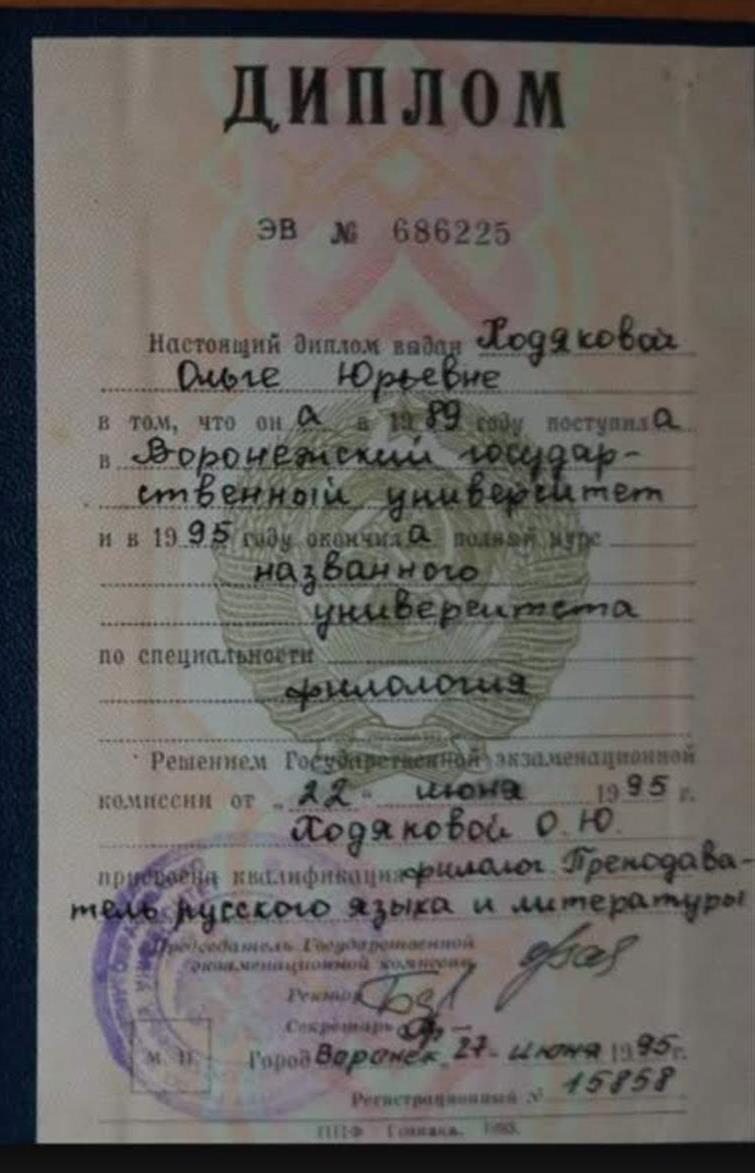 ДИПЛОМ
ЭВ № 686225
Настоящий диплом выдан Ходяковой
Ольге Юрьевне
в том, что он а в 19 89 году поступил а
в Воронежский государ-
ственный университет
и в 19 95 году окончил а полный курс
названного
университета
по специальности
филология
Решением Государственной экзаменационной
комиссии от „ 22 " июня 19 95 г.
Ходяковой О. Ю.
присвоена квалификация филолог. Преподава-
тель русского языка и литературы
Председатель Государственной
экзаменационной комиссии
Ректор
Секретарь
М. П. Город Воронеж, 27 - июня 19 95 г.
Регистрационный № 15858
Гознака.